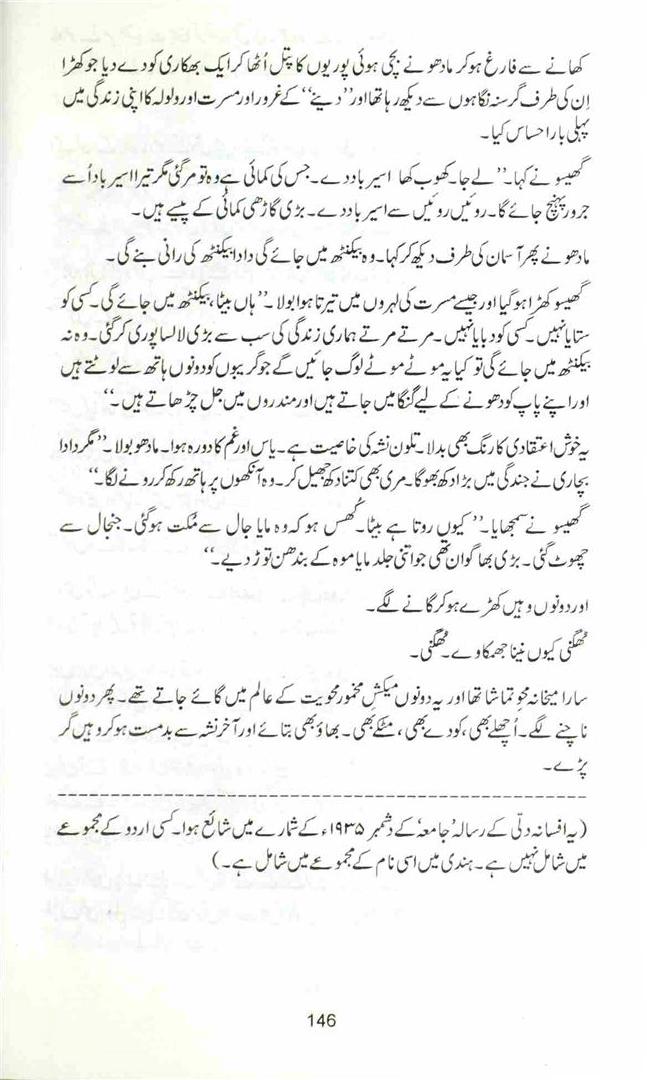 کھانے سے فارغ ہوکر مادھو نے بچی ہوئی پوریوں کا پتل اُٹھا کر ایک بھکاری کو دے دیا جو کھڑا
اِن کی طرف گرسنہ نگاہوں سے دیکھ رہا تھا اور ”دینے“ کے غرور اور مسرت اور ولولہ کا اپنی زندگی میں
پہلی بار احساس کیا۔
گھیسو نے کہا۔ ”لے جا۔ کھوب کھا اسیر باد دے۔ جس کی کمائی ہے وہ تو مرگئی مگر تیرا اسیر باد اُسے
جرور پہنچ جائے گا۔ روئیں روئیں سے اسیر باد دے۔ بڑی گاڑھی کمائی کے پیسے ہیں۔
مادھو نے پھر آسمان کی طرف دیکھ کر کہا۔ وہ بیکنٹھ میں جائے گی دادا بیکنٹھ کی رانی بنے گی۔
گھیسو کھڑا ہوگیا اور جیسے مسرت کی لہروں میں تیرتا ہوا بولا۔ ”ہاں بیٹا، بیکنٹھ میں جائے گی۔ کسی کو
ستایا نہیں۔ کسی کو دبایا نہیں۔ مرتے مرتے ہماری زندگی کی سب سے بڑی لالسا پوری کرگئی۔ وہ نہ
بیکنٹھ میں جائے گی تو کیا یہ موٹے موٹے لوگ جائیں گے جو گریبوں کو دونوں ہاتھ سے لوٹتے ہیں
اور اپنے پاپ کو دھونے کے لیے گنگا میں جاتے ہیں اور مندروں میں جل چڑھاتے ہیں۔“
یہ خوش اعتقادی کا رنگ بھی بدلا۔ تلون نشہ کی خاصیت ہے۔ یاس اور غم کا دورہ ہوا۔ مادھو بولا۔ ”مگر دادا
بچاری نے جندگی میں بڑا دکھ بھوگا۔ مری بھی کتنا دکھ جھیل کر۔ وہ آنکھوں پر ہاتھ رکھ کر رونے لگا۔“
گھیسو نے سمجھایا۔ ”کیوں روتا ہے بیٹا۔ کُھس ہو کہ وہ مایا جال سے مُکت ہوگئی۔ جنجال سے
چھوٹ گئی۔ بڑی بھاگوان تھی جو اتنی جلد مایا موہ کے بندھن توڑ دیے۔“
اور دونوں وہیں کھڑے ہوکر گانے لگے۔
ٹھگنی کیوں نینا جھمکاوے۔ ٹھگنی۔
سارا میخانہ محو تماشا تھا اور یہ دونوں میکش مخمور محویت کے عالم میں گائے جاتے تھے۔ پھر دونوں
ناچنے لگے۔ اُچھلے بھی، کودے بھی، مٹکے بھی۔ بھاؤ بھی بتائے اور آخر نشہ سے بدمست ہوکر وہیں گر
پڑے۔
(یہ افسانہ دلّی کے رسالہ 'جامعہ' کے دسمبر ۱۹۳۵ء کے شمارے میں شائع ہوا۔ کسی اردو کے مجموعے
میں شامل نہیں ہے۔ ہندی میں اسی نام کے مجموعے میں شامل ہے۔)
146